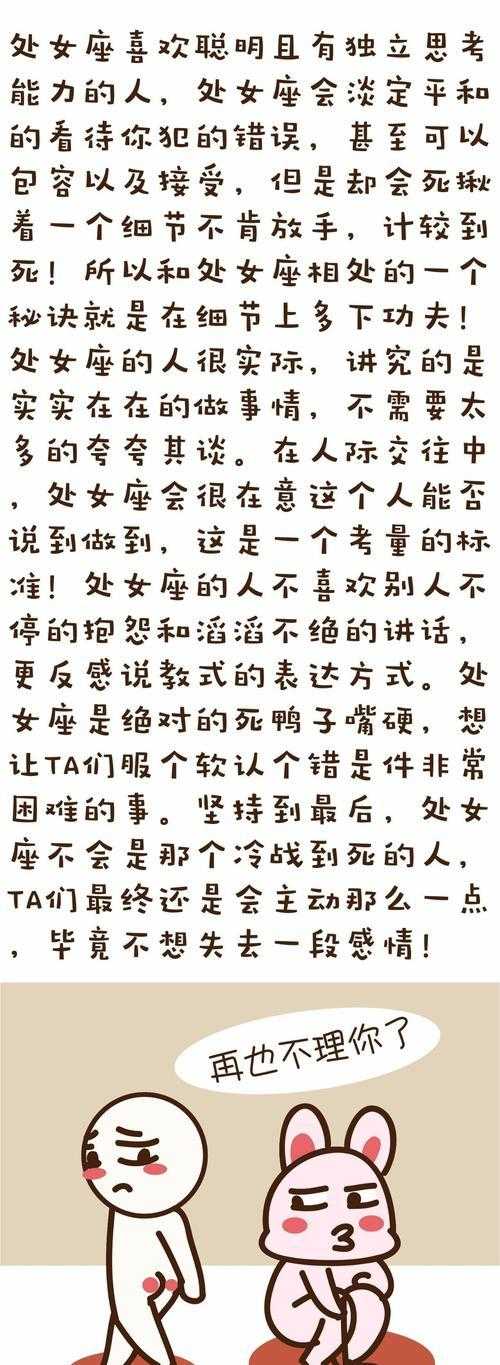 处女座喜欢聪明且有独立思考
能力的人，处女座会淡定平和
的看待你犯的错误，甚至可以
包容以及接受，但是却会死揪
着一个细节不肯放手，计较到
死！所以和处女座相处的一个
秘诀就是在细节上多下功夫！
处女座的人很实际，讲究的是
实实在在的做事情，不需要太
多的夸夸其谈。在人际交往中
，处女座会很在意这个人能否
说到做到，这是一个考量的标
准！处女座的人不喜欢别人不
停的抱怨和滔滔不绝的讲话，
更反感说教式的表达方式。处
女座是绝对的死鸭子嘴硬，想
让TA们服个软认个错是件非常
困难的事。坚持到最后，处女
座不会是那个冷战到死的人，
TA们最终还是会主动那么一点
，毕竟不想失去一段感情！
再也不理你了